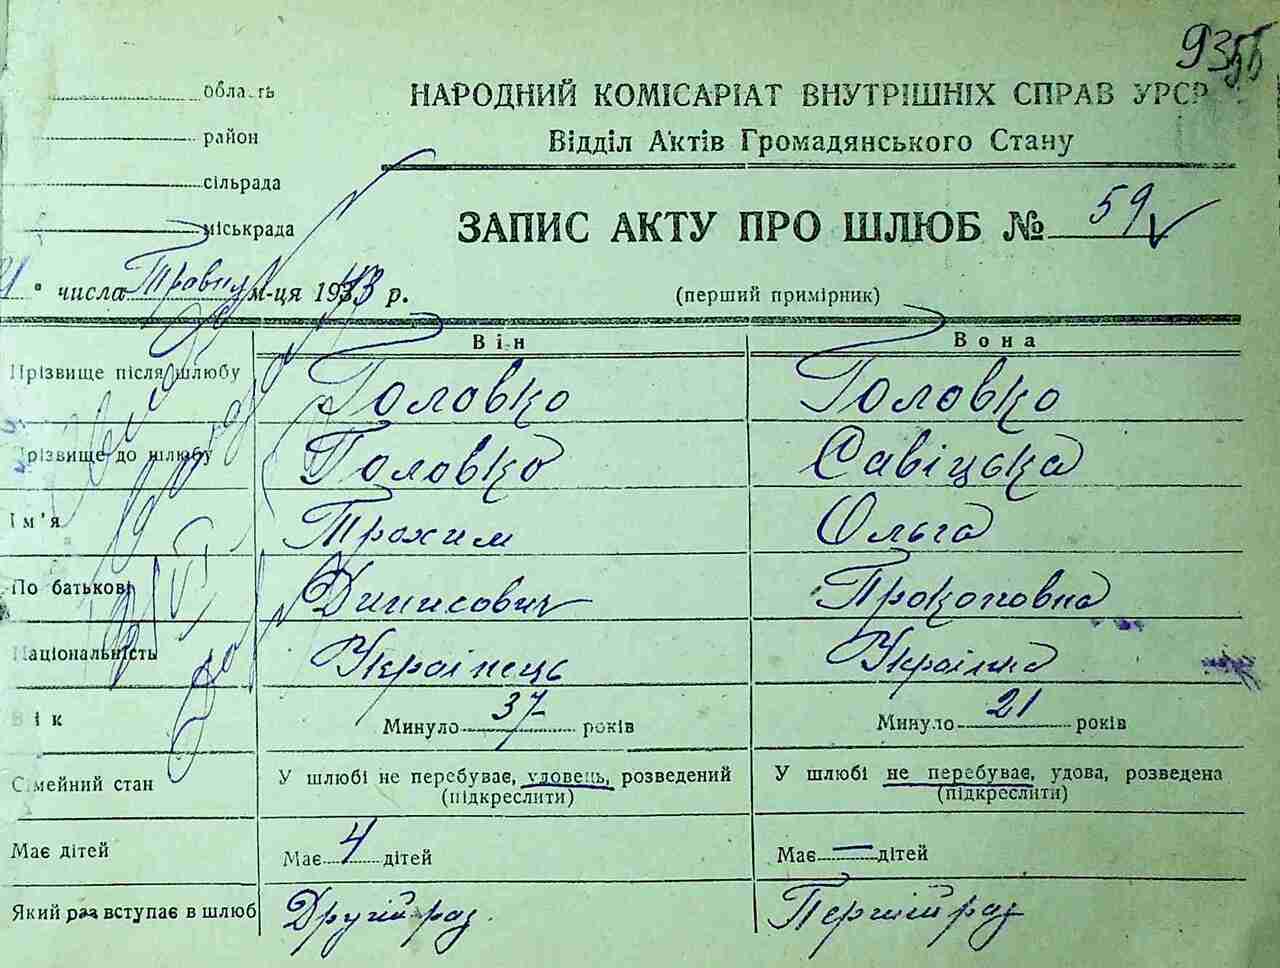 область
район
сільрада
міськрада
НАРОДНИЙ КОМІСАРІАТ ВНУТРІШНІХ СПРАВ УРСР
Відділ Актів Громадянського Стану
ЗАПИС АКТУ ПРО ШЛЮБ № 59
числа Травня м-ця 193 р.
(перший примірник)
Він Вона
Прізвище після шлюбу Головко Головко
Прізвище до шлюбу Головко Савіцька
Ім'я Трохим Ольга
По батькові Динисович Прокоповна
Національність Украінець Украінка
Вік Минуло 37 років Минуло 21 років
Сімейний стан У шлюбі не перебуває, удовець, розведений У шлюбі не перебуває, удова, розведена
(підкреслити) (підкреслити)
Має дітей Має 4 дітей Має — дітей
Який раз вступає в шлюб Другій раз. Перший раз